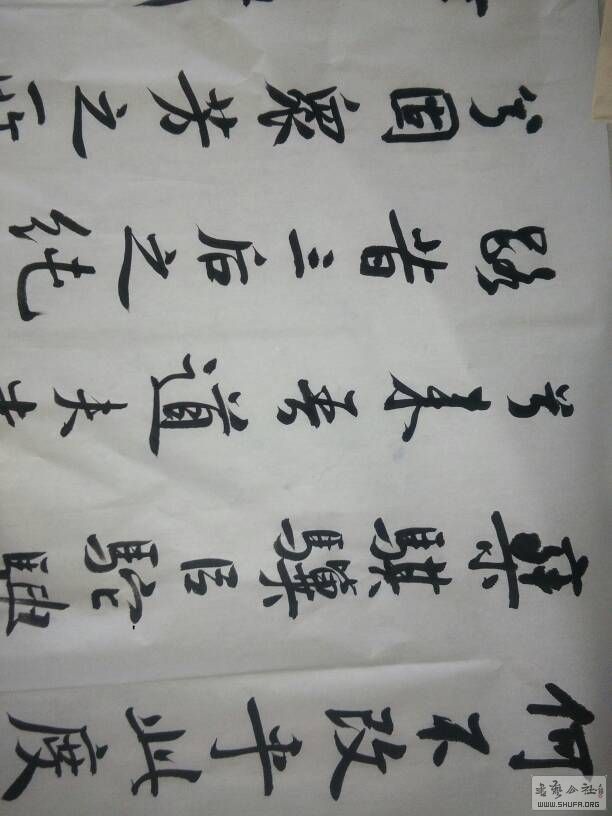 何不改乎此度
乘騏驥以馳騁
兮來吾道夫
路昔三后之純
兮固眾芳之所
书艺公社
WWW.SHUFA.ORG